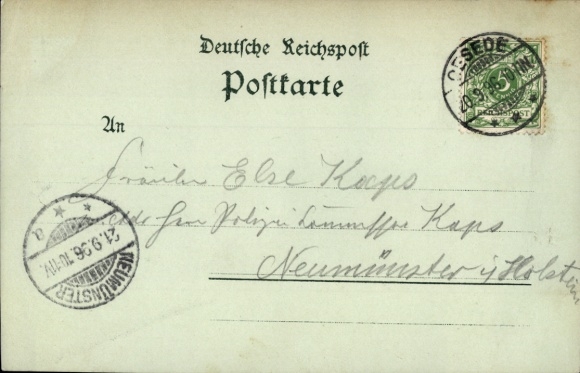 Deutsche Reichspost
Postkarte
OESEDE
20.9.96.10-11V.
5
REICHSPOST
An
Fräulein Else Kaps
Adr Herr Polizei Commissar Kaps
Neumünster i/Holstein
21.9.96.10-11V.
NEUMÜNSTER
a